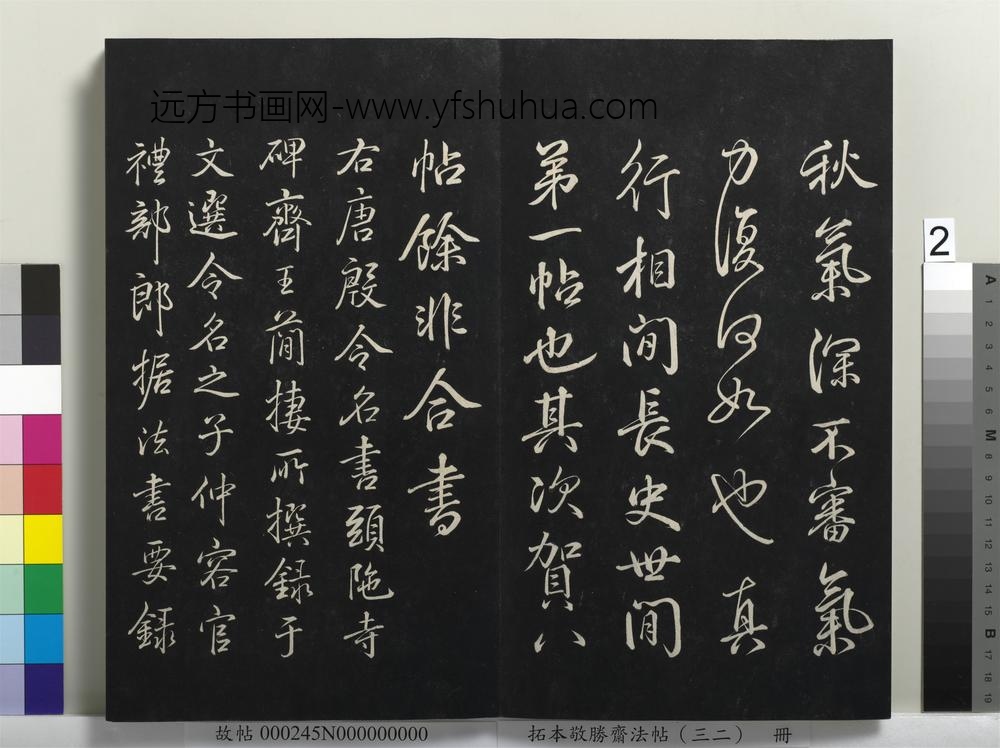 远方书画网-www.yfshuhua.com
秋氣深不審氣
力復何如也真
行相間長史世間
第一帖也其次賀八
帖餘非合書
右唐殷令名書頭陁寺
碑齊王簡棲所撰録于
文選令名之子仲容官
禮部郎据法書要録
2
A
1
2
3
4
5
M
8
9
10
11
12
13
14
15
B
17
18
19
故帖 000245N000000000
拓本敬勝齋法帖（三二） 冊